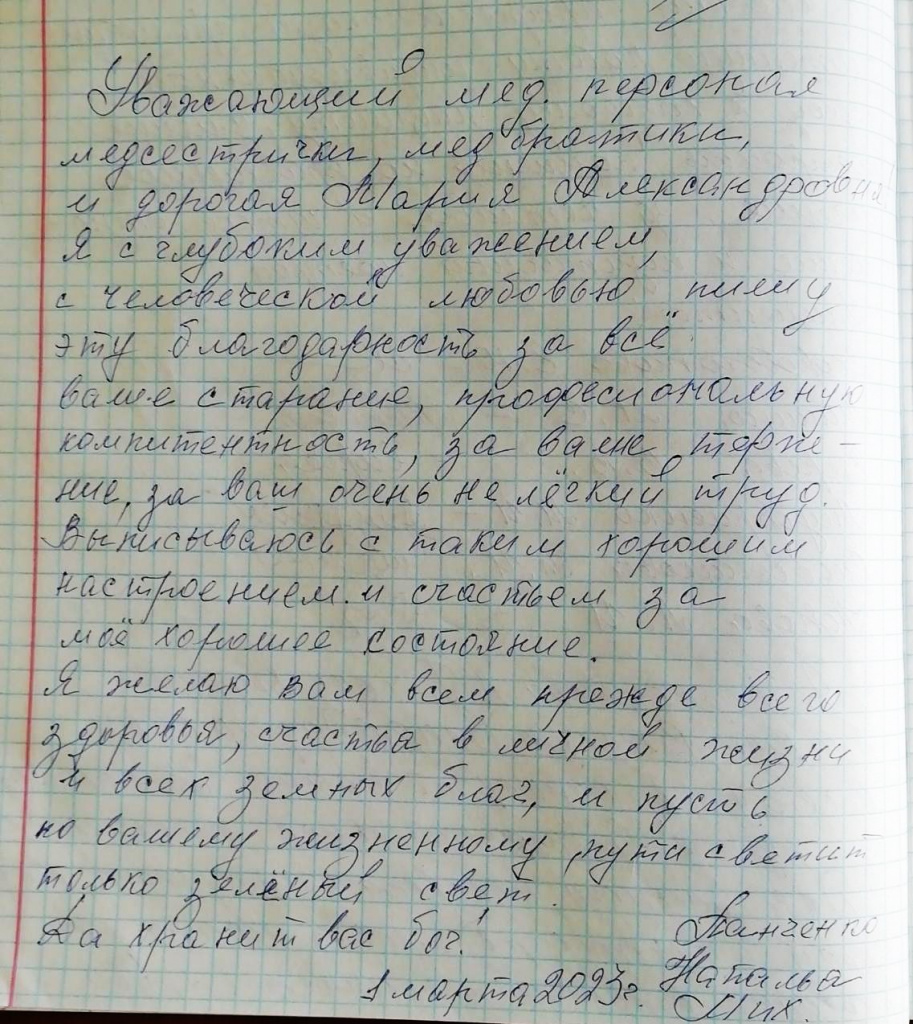 Уважающий мед. персонал
медсестрички, мед братики,
и дорогая Мария Александровна
Я с глубоким уважением,
с человеческой любовью пишу
эту благодарность за всё
ваше старание, профессиональную
компитентность, за ваше терпе-
ние, за ваш очень не лёгкий труд.
Выписываюсь с таким хорошим
настроением и счастьем за
моё хорошее состояние.
Я желаю вам всем прежде всего
здоровья, счастья в личной жизни
и всех земных благ, и пусть
по вашему жизненному пути светит
только зелёный свет.
Да хранит вас бог!
Панченко
Наталья
Мих.
1 марта 2023г.